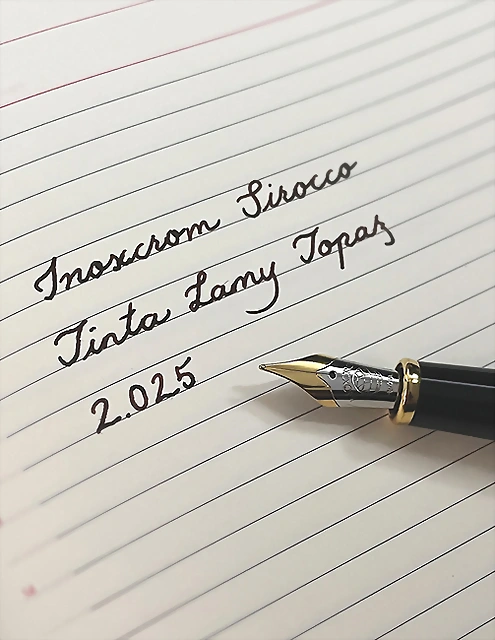 Inoxcrom Sirocco
Tinta Lamy Topaz
2.025